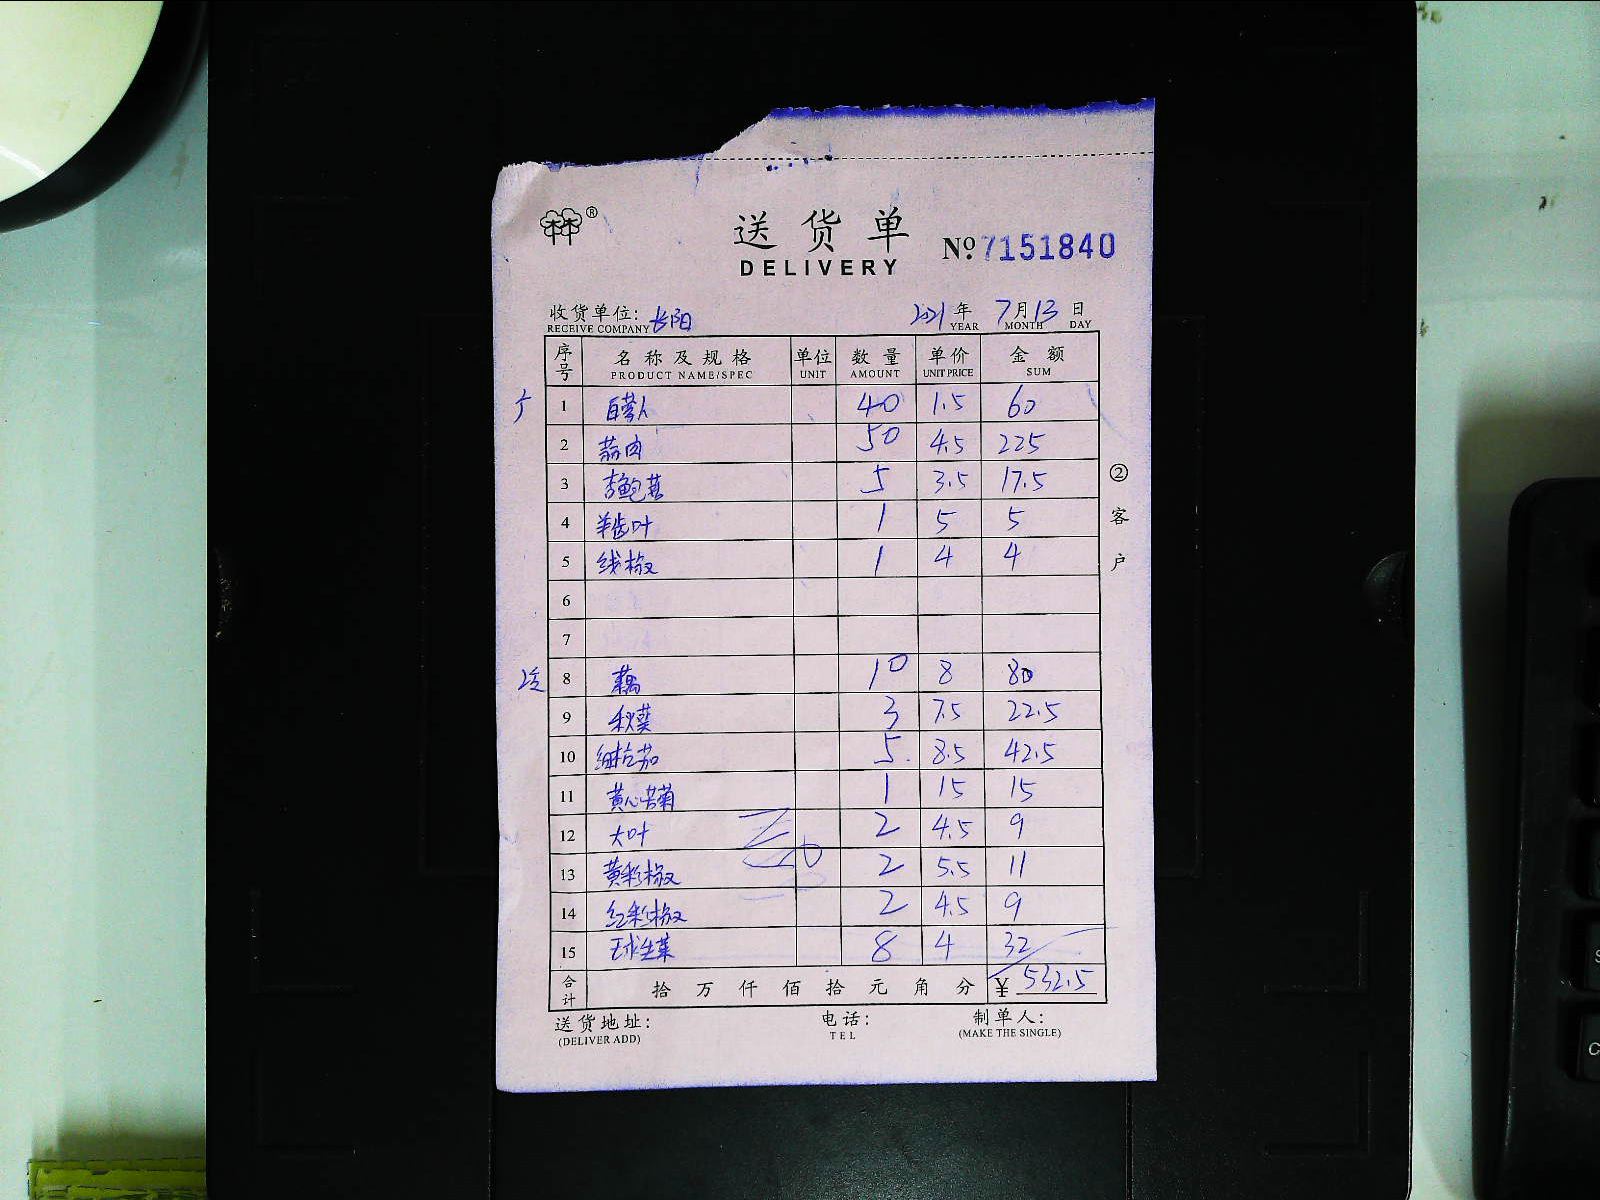 ®
送货单
DELIVERY
№: 7151840
收货单位: 长阳 2021年 7月13日
RECEIVE COMPANY YEAR MONTH DAY
序号 名称及规格 单位 数量 单价 金额
PRODUCT NAME/SPEC UNIT AMOUNT UNIT PRICE SUM
1 40 1.5 60
2 蒜肉 50 4.5 225
3 杏鲍菇 5 3.5 17.5
4 羊齿叶 1 5 5
5 线椒 1 4 4
6
7
8 藕 10 8 80
9 秋葵 3 7.5 22.5
10 5 8.5 42.5
11 黄心苦菊 1 15 15
12 大叶 2 4.5 9
13 黄彩椒 2 5.5 11
14 红彩椒 2 4.5 9
15 球生菜 8 4 32
合计 拾万仟佰拾元角分 ¥ 532.5
②客户
送货地址: 电话: 制单人:
(DELIVER ADD) TEL (MAKE THE SINGLE)